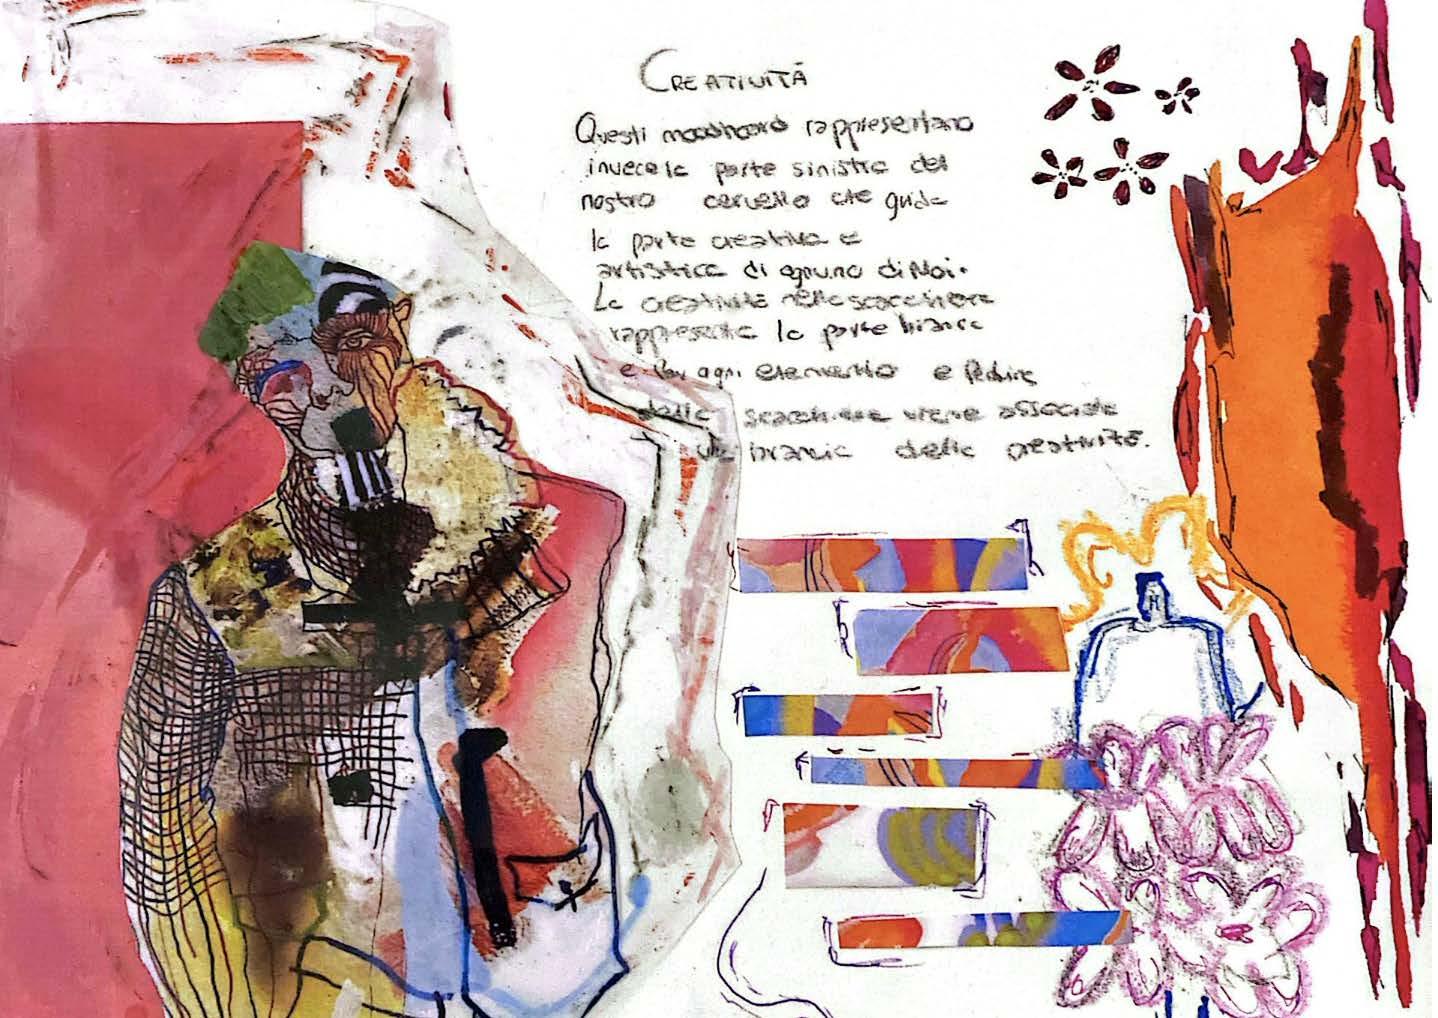 CREATIVITÁ
Questi moodboard rappresentano
invece la parte sinistra del
nostro cervello che guida
la parte creativa e
artistica di ognuno di Noi.
La creatività nella scacchiera
rappresenta la parte bianca
e Per ogni elemento e Pedina
della scacchiera viene associata
una branca della creatività.